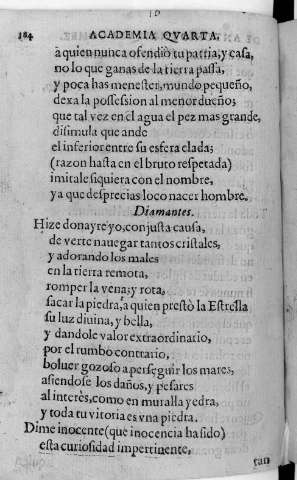 184 ACADEMIA QVARTA,
à quien nunca ofendio tu patria, y casa,
no lo que ganas de la tierra passa,
y poca has menester, mundo pequeño,
dexa la possession al menor dueño;
que tal vez en el agua el pez mas grande,
disimula que ande
el inferior entre su esfera elada;
(razon hasta en el bruto respetada)
imitale siquiera con el nombre,
ya que desprecias loco nacer hombre.
Diamantes.
Hize donayre yo, con justa causa,
de verte nauegar tantos cristales,
y adorando los males
en la tierra remota,
romper la vena; y rota,
sacar la piedra, a quien prestò la Estrella
su luz diuina, y bella,
y dandole valor extraordinario,
por el rumbo contrario,
boluer gozoso a perseguir los mares,
asiendose los daños, y pesares
al interès, como en muralla yedra,
y toda tu vitoria es vna piedra.
Dime inocente (que inocencia ha sido)
esta curiosidad impertinente,
tan